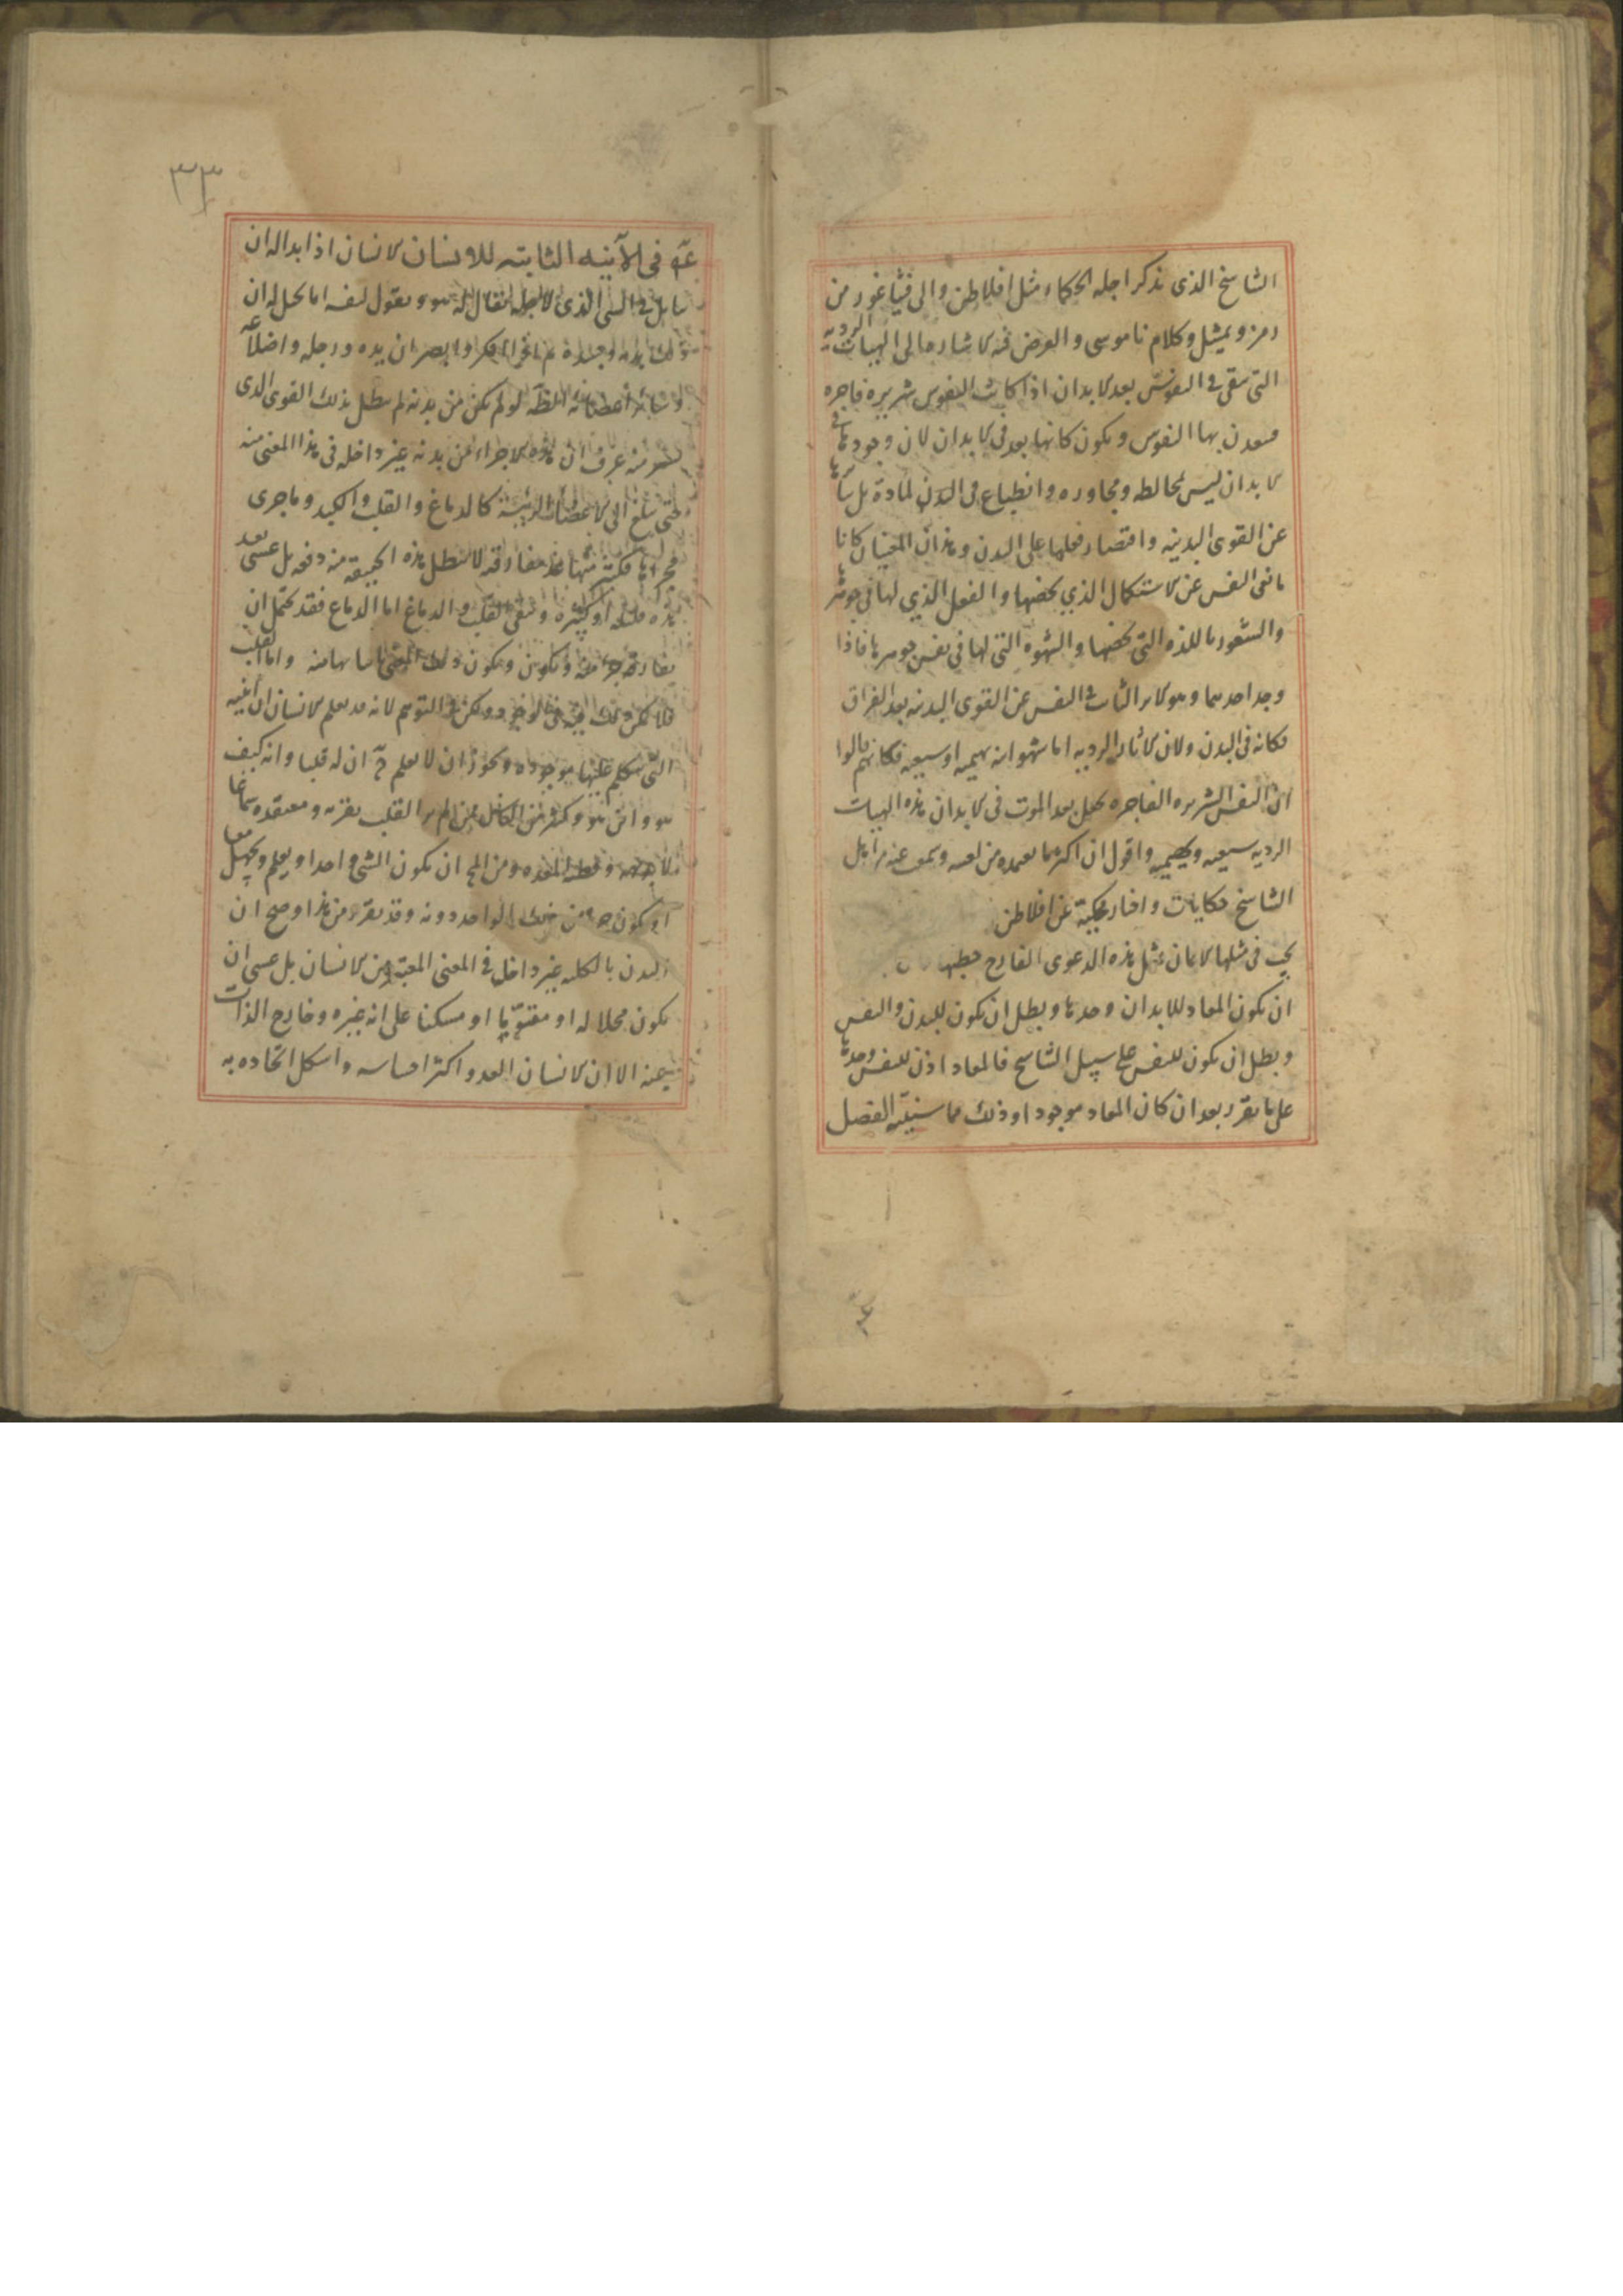 الشايخ الذى نذكر اجله الحكماء مثل افلاطن والى فيثاغورس من
رمز وتمثيل وكلام ناموسى والغرض فيه الاشاره الى الهيات الرديه
التى تبقى فى النفوس بعد الابدان اذا كانت النفوس شريره فاجره
فتعدن بها النفوس ويكون كانها بعد فى الابدان لان وجودها فى
الابدان ليس لمخالطه ومجاوره وانطباع فى البدن لمادة بل
عن القوى البدنيه واقتصار فعلها على البدن وهذان المعنيان كانا
مانعى النفس عن الاستكمال الذي يخصها والفعل الذي لها فى جوهرها
والشعور باللذه التى تخصها والشهوه التى لها فى نفس جوهرها فاذا
وجد احدهما وهو الاثر الثابت فى النفس عن القوى البدنيه بعد الفراق
فكانه فى البدن ولان الاثار الرديه اما شهوانيه بهيميه او سبعيه فكانهم قالوا
ان النفس الشريره الفاجره تحل بعد الموت فى الابدان هذه الهيات
الرديه سبعيه وبهيميه واقول ان اكثر ما يعتمده من لعبه وسمعت عنه من اهل
الشاسخ حكايات واخبار عجيبة عن افلاطن
يجب فى مثلها الايمان مثل هذه الدعوى القادح
ان يكون المعاد للابدان وحدها وبطل ان يكون للبدن والنفس
وبطل ان يكون للنفس على سبيل الشاسخ فالمعاد اذن للنفس وحدها
على ما تقرر بعد ان كان المعاد موجودا وذلك مما سنبينه الفصل
٣٣
فى الآنيه الثابته للانسان الانسان اذا بدا له ان
يتامل فى الشى الذى لاجله يقال له هو ويقول لنفسه انا يخيل له ان
ذلك بدنه وجسده ثم اذا فكر وابصر ان يده ورجله واضلاعه
وسائر اعضائه الظاهره لو لم تكن من بدنه لم يبطل بذلك القوى الذى
يشير منه عرف ان هذه الاجزاء من بدنه غير داخله فى هذا المعنى منه
حتى يبلغ الى الاعضاء الرئيسة كالدماغ والقلب والكبد وما جرى
مجراها فكثير منها عند مفارقته لا تبطل هذه الحقيقه منه دفعه بل عسى بعد
مده قليله او كثيره ويبقى القلب والدماغ اما الدماغ فقد يحتمل ان
يفارقه جزء منه ويكون ذلك المعنى ثابتا منه واما القلب
فلا يمكن ذلك فيه فى الوجود ويمكن فى التوهم لانه قد يعلم الانسان ان انيته
التى يتكلم عليها موجوده ويجوز ان لا يعلم مع ان له قلبا وانه كيف
هو واين هو وكثير من الناس ممن لم ير القلب يقر به ومعتقده سماعا
لا بديهه ومن المح ان يكون الشى واحدا ويعلم ويجهل معا
او يكون جزء من ذلك الواحد دونه وقد تقرر من هذا وصح ان
البدن بالكليه غير داخل فى المعنى المعتبر من الانسان بل عسى ان
يكون محلا له او مقتوما او مسكنا على انه غيره وخارج الذات
عنه الا ان الانسان الفه واكثر احساسه واشكل اتحاده به